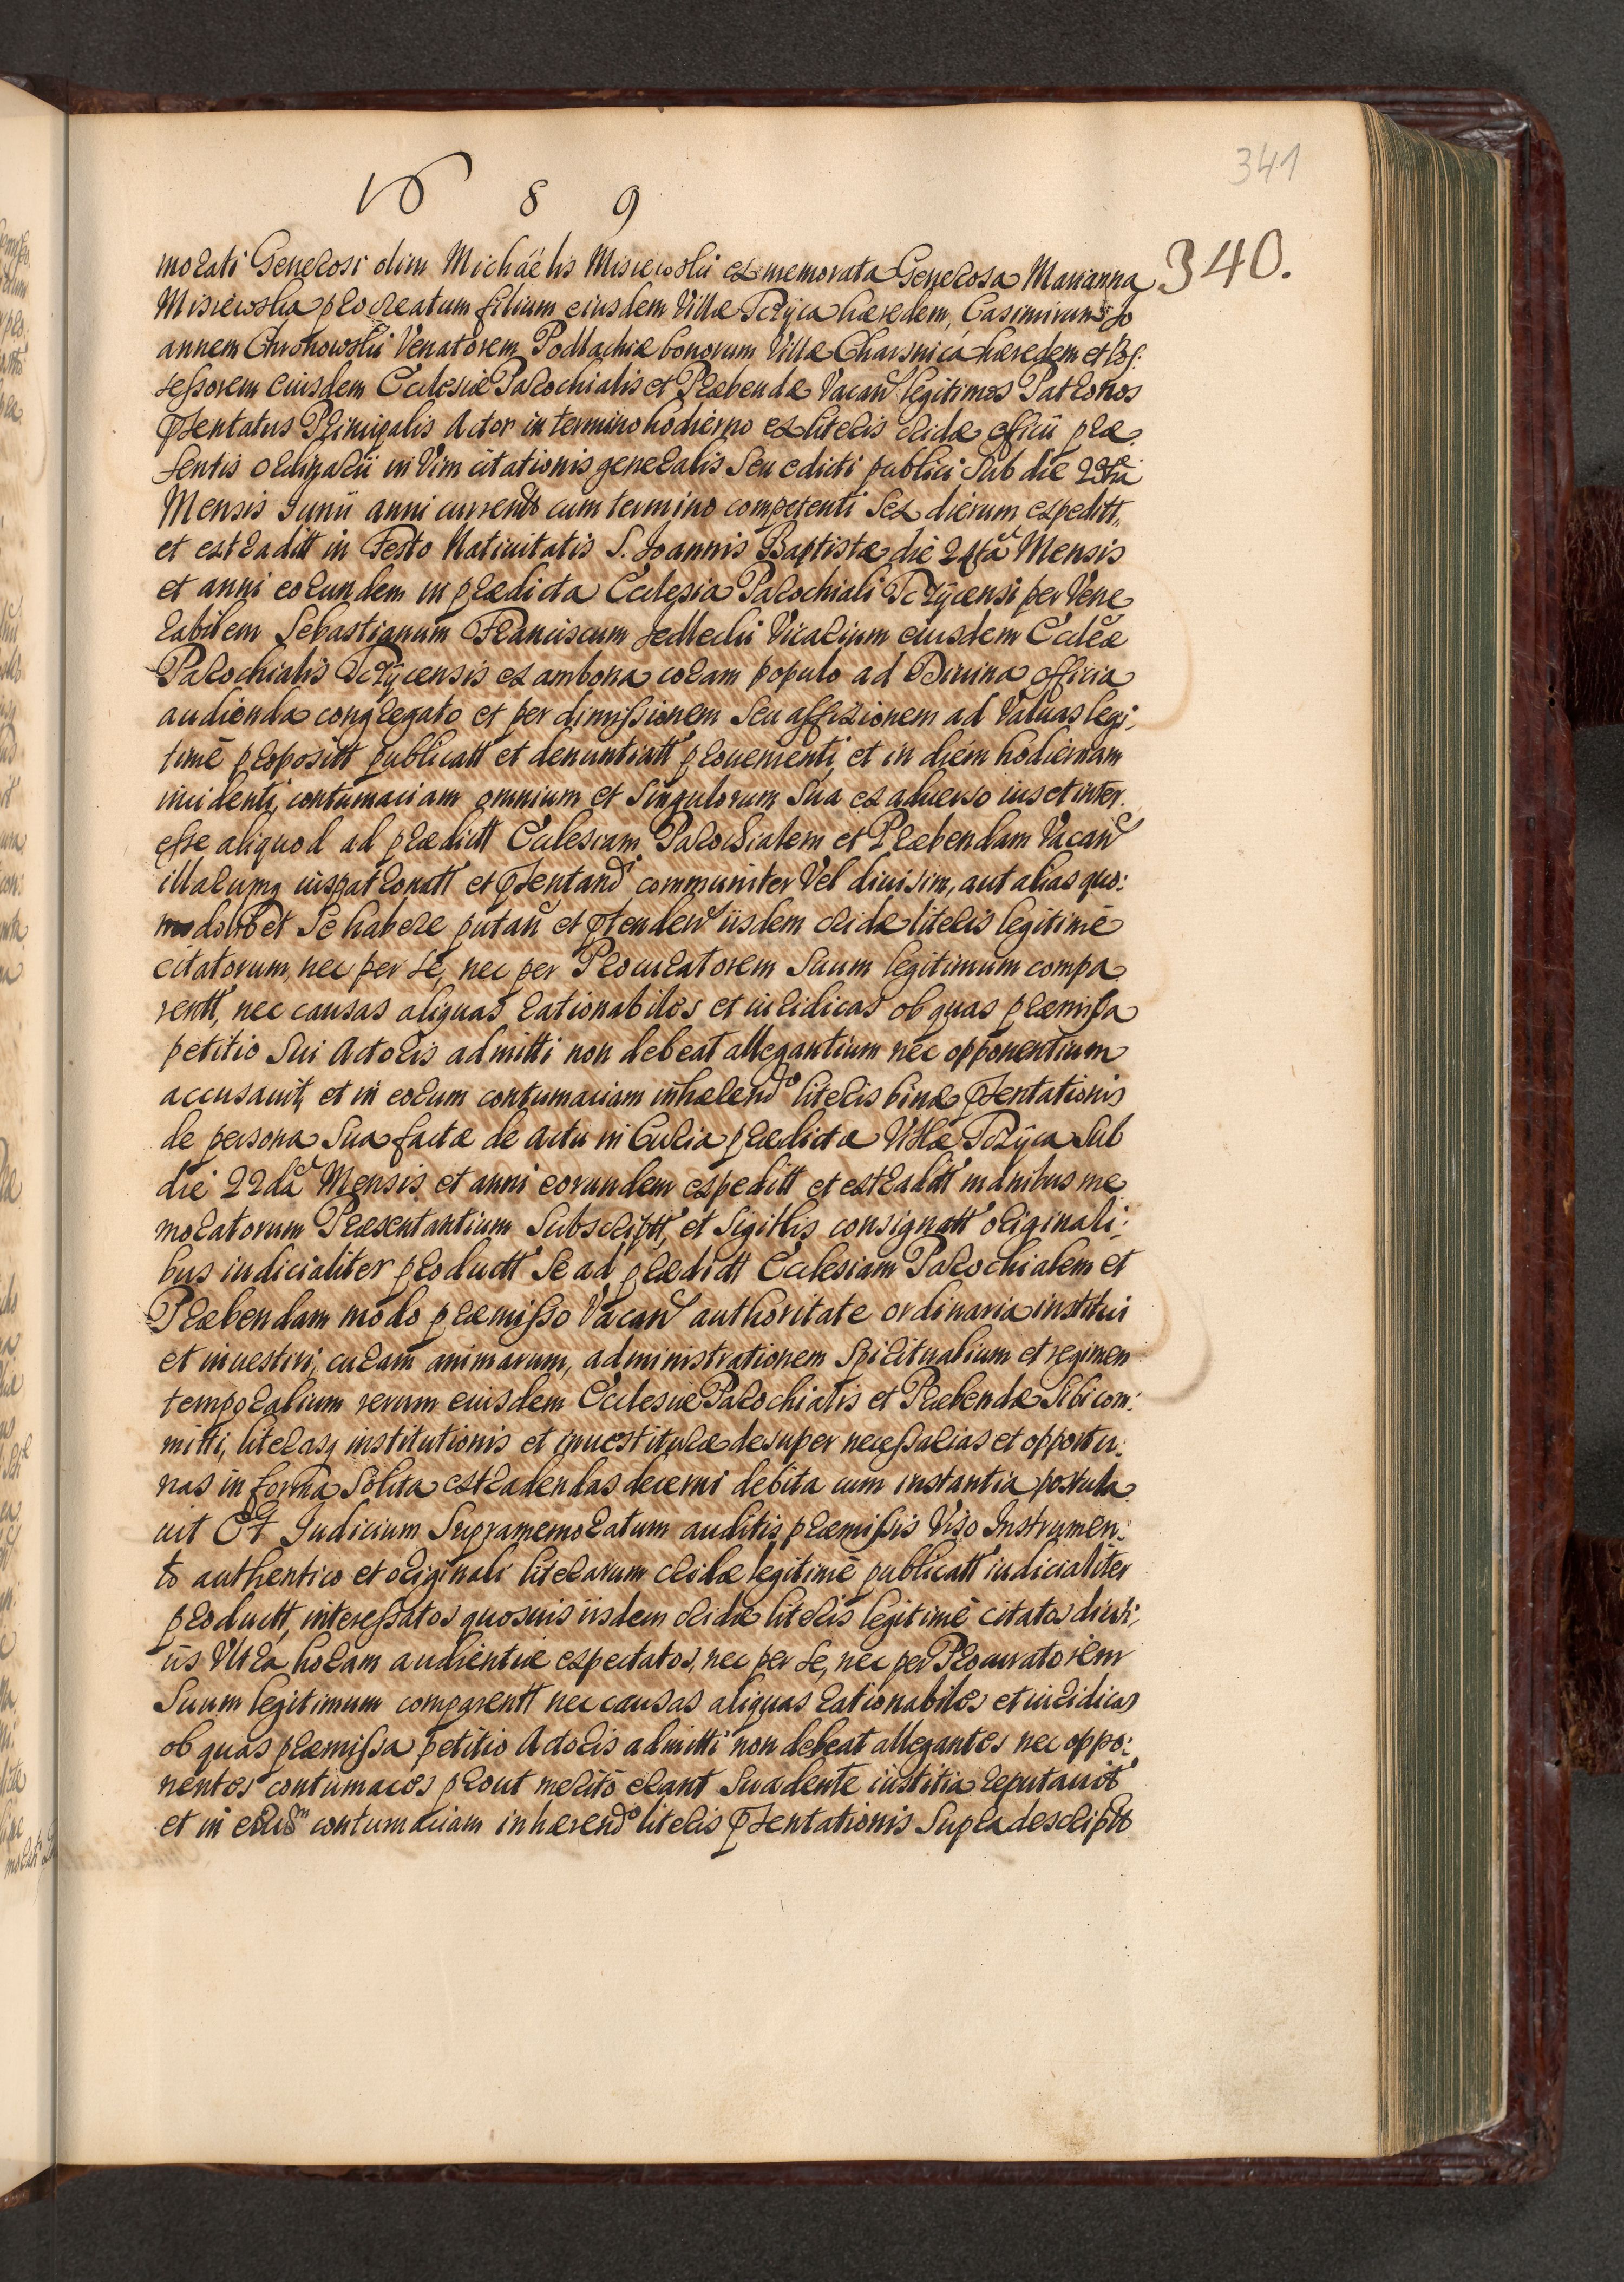 341
1689
340.
morati Generosi olim Michäelis Misiewski ex memorata Generosa Marianna
Misiewska procreatum filium eiusdem Villæ Tczyca hæredem, Casimirum Jo
annem Chronowski Venatorem Podlachiæ bonorum Villæ Charsnica hæredem et Pos:
sessorem eiusdem Ecclesiæ Parochialis et Præbendæ Vacan legitimos Patronos
pśentatus Principalis Actor in termino hodierno ex literis cridæ officii præ
sentis Ordinarii in Vim citationis generalis seu edicti publici sub die 23tia
Mensis Junii anni currentt cum termino competenti sex dierum expeditt,
et extraditt in Festo Natiuitatis S. Joannis Baptistæ die 24ta Mensis
et anni eorundem in prædicta Ecclesia Parochiali Tczycensi per Vene
rabilem Sebastianum Franciscum Jedlecki Vicarium eiusdem Ecclæ
Parochialis Tczycensis ex ambona coram populo ad Diuina officia
audienda congregato et per dimissionem seu affixionem ad Valuas legi:
timè propositt publicatt et denuntiatt prouenienti, et in diem hodiernam
incidenti, contumaciam omnium et singulorum sua ex aduerso ius et inter
esse aliquod ad prædictt Ecclesiam Parochialem et Præbendam Vacan
illarumq iuspatronatt et pśentandi communiter Vel diuisim, aut alias quo:
modolibet se habere putan et ptenden iisdem cridæ literis legitimè
citatorum, nec per se, nec per Procuratorem suum legitimum compa
rentt, nec causas aliquas rationabiles et iuridicas ob quas præmissa
petitio sui Actoris admitti non debeat allegantium nec opponentium
accusauit, et in eorum contumaciam inhærendo literis binæ pśentationis
de persona sua factæ de actu in Curia prædictæ Villæ Tczyca sub
die 22da Mensis et anni eorundem expeditt et extraditt manibus me
moratorum Præsentantium subscriptt, et sigillis consignatt originali:
bus iudicialiter productt se ad prædictt Ecclesiam Parochialem et
Præbendam modo præmisso Vacan authoritate ordinaria institui
et inuestiri, curam animarum, administrationem spiritualium et regimen
temporalium rerum eiusdem Ecclesiæ Parochialis et Præbendæ sibi com:
mitti, literasq institutionis et inuestituræ desuper necessarias et opportu:
nas in forma solita extradendas decerni debita cum instantia postula
uit Et Judicium Supramemoratum auditis præmissis Viso Instrumen:
to authentico et originali literarum cridæ legitimè publicatt iudicialiter
productt, interessatos quosuis iisdem cridæ literis legitimè citatos diuti:
ùs Vltra horam audientiæ expectatos, nec per se, nec per Procuratorem
suum legitimum comparentt nec causas aliquas rationabiles et iuridicas
ob quas præmissa petitio Actoris admitti non debeat allegantes nec oppo:
nentes contumaces prout meritò erant suadente iustitia reputauit
et in eorum contumaciam inhærendo literis pśentationis supra descriptt